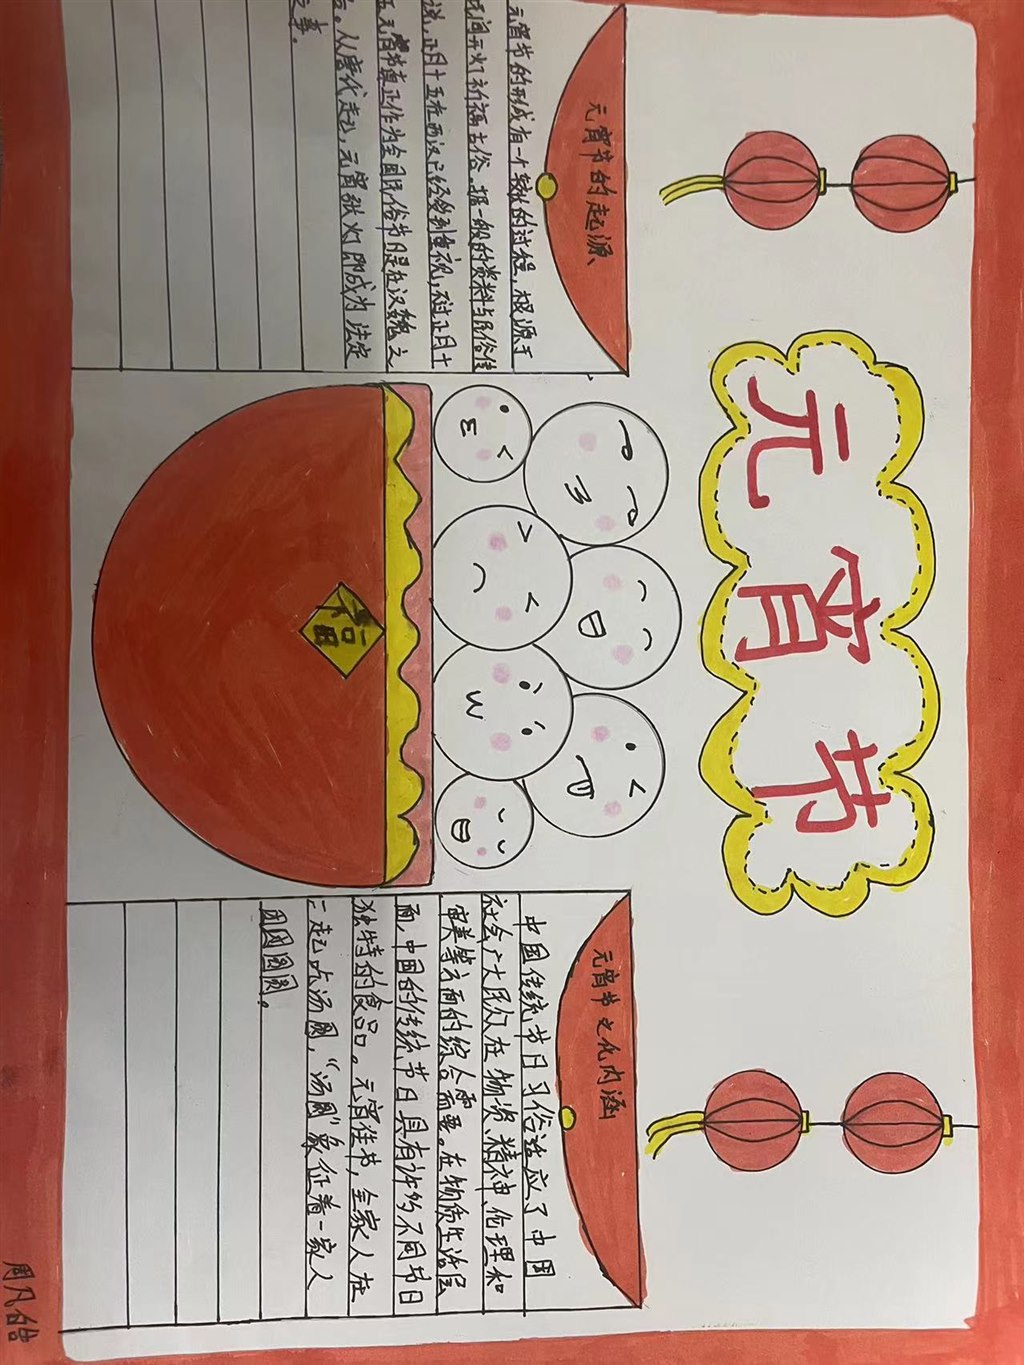 元宵节
元宵节的起源
元宵节的形成有一个较长的过程,根源于
民间开灯祈福古俗。据一般的资料与民俗传
说,正月十五在西汉已经受到重视,
五元宵节真正作为全国民俗节日是在汉魏之
后。从唐代起,元宵张灯即成为法定
之事。
福
元宵节文化内涵
中国传统节日习俗适应了中国
社会广大民众在物资、精神、伦理和
审美等方面的综合需要。在物质生活层
面,中国的传统节日具有许多不同节日
独特的食品。元宵佳节,全家人在
一起吃汤圆,“汤圆”象征着一家人
团团圆圆。